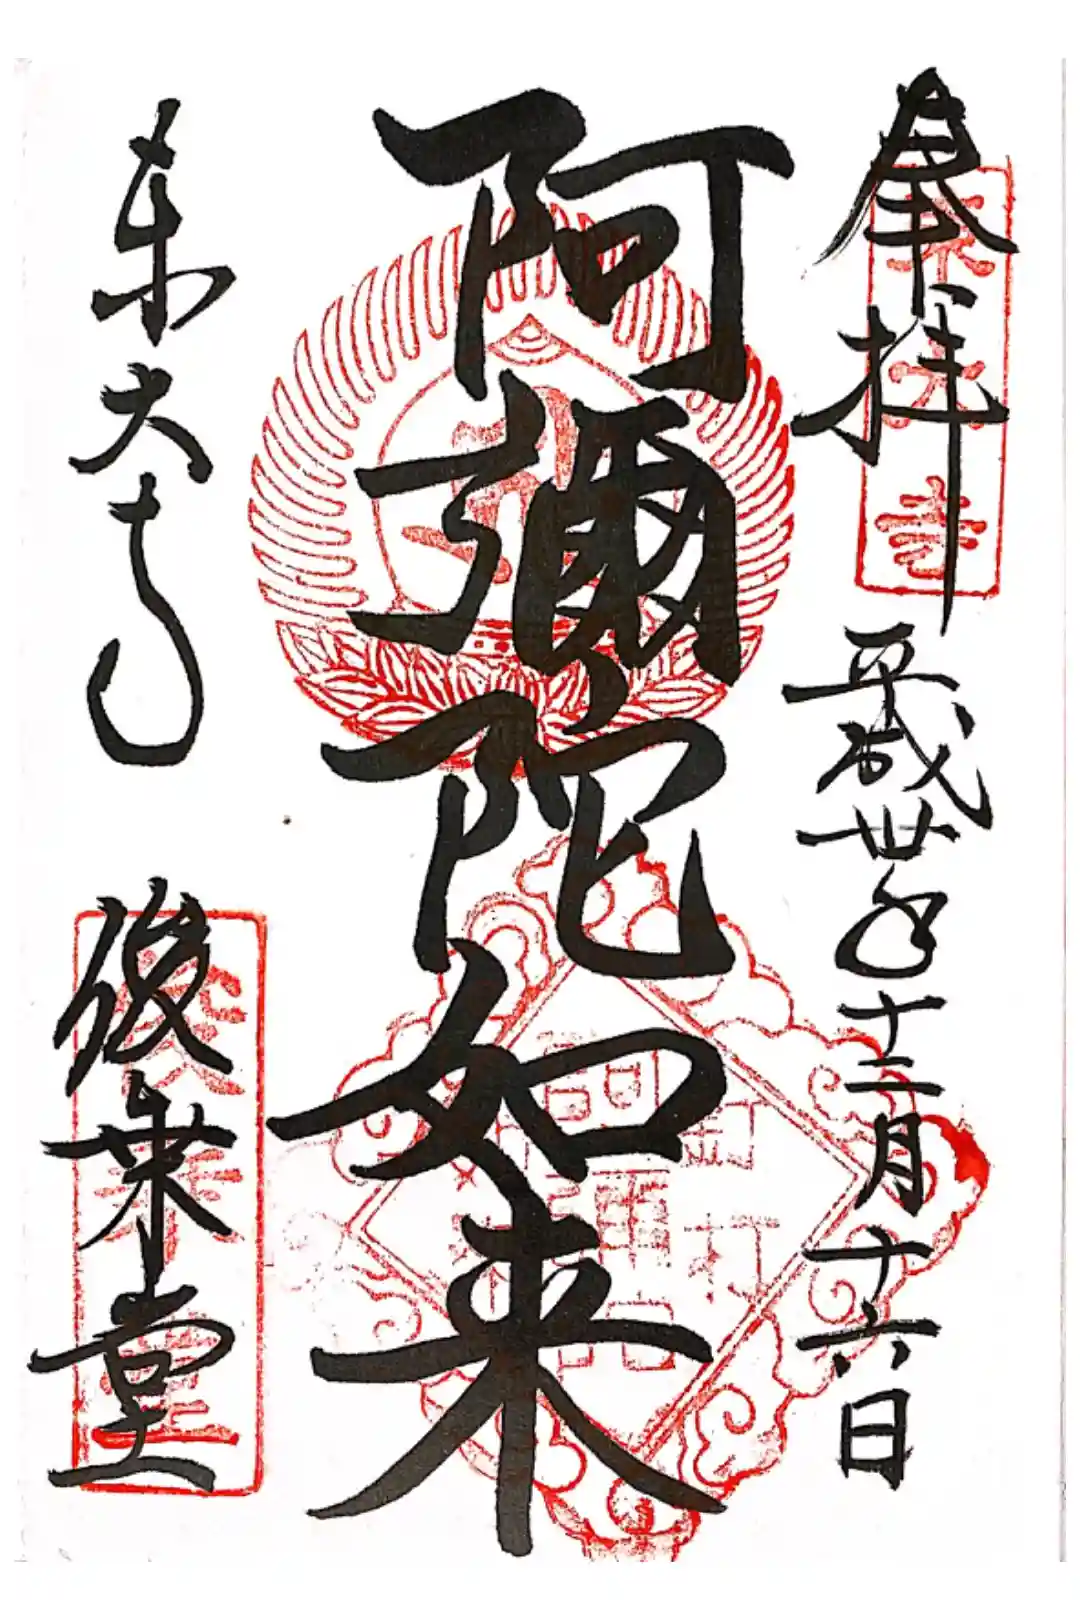 奉拝
平成卅年十二月十六日
阿彌陀如来
東大寺
俊乗堂
東大寺
俊乗堂